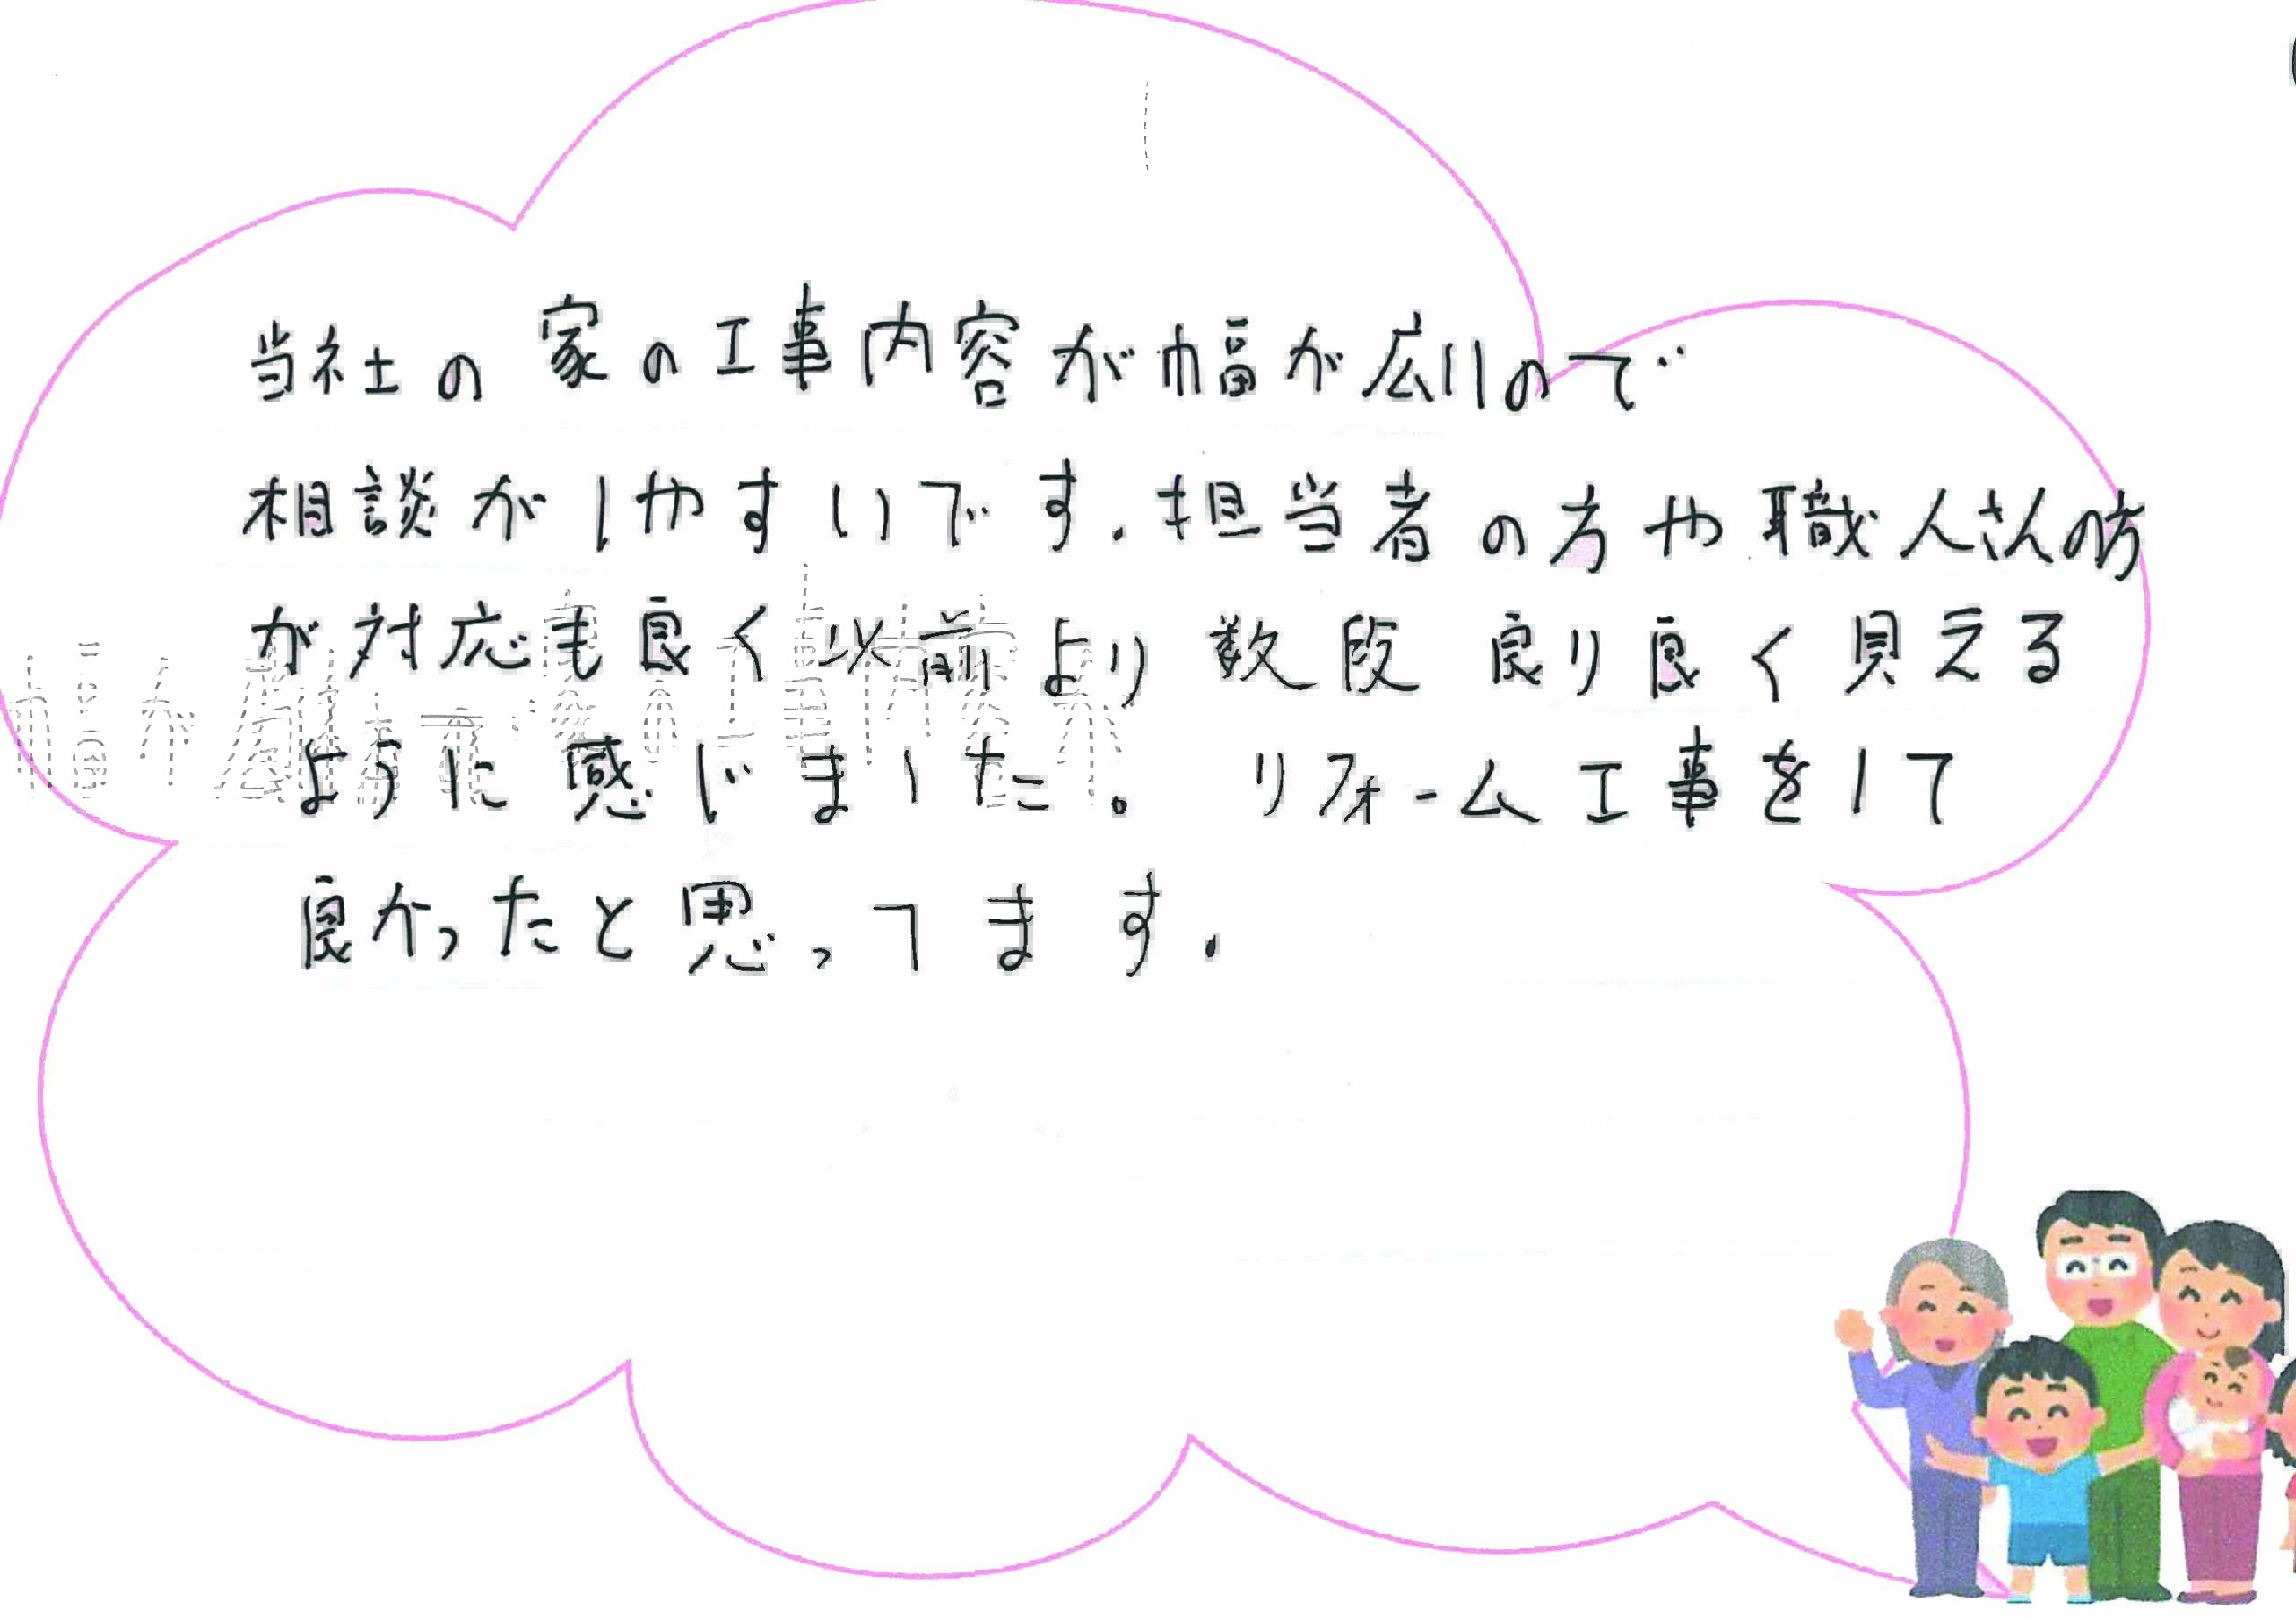 当社の家の工事内容が幅が広いので
相談がしやすいです.担当者の方や職人さんの方
が対応も良く以前より数段良り良く見える
ように感じました。リフォーム工事をして
良かったと思ってます.